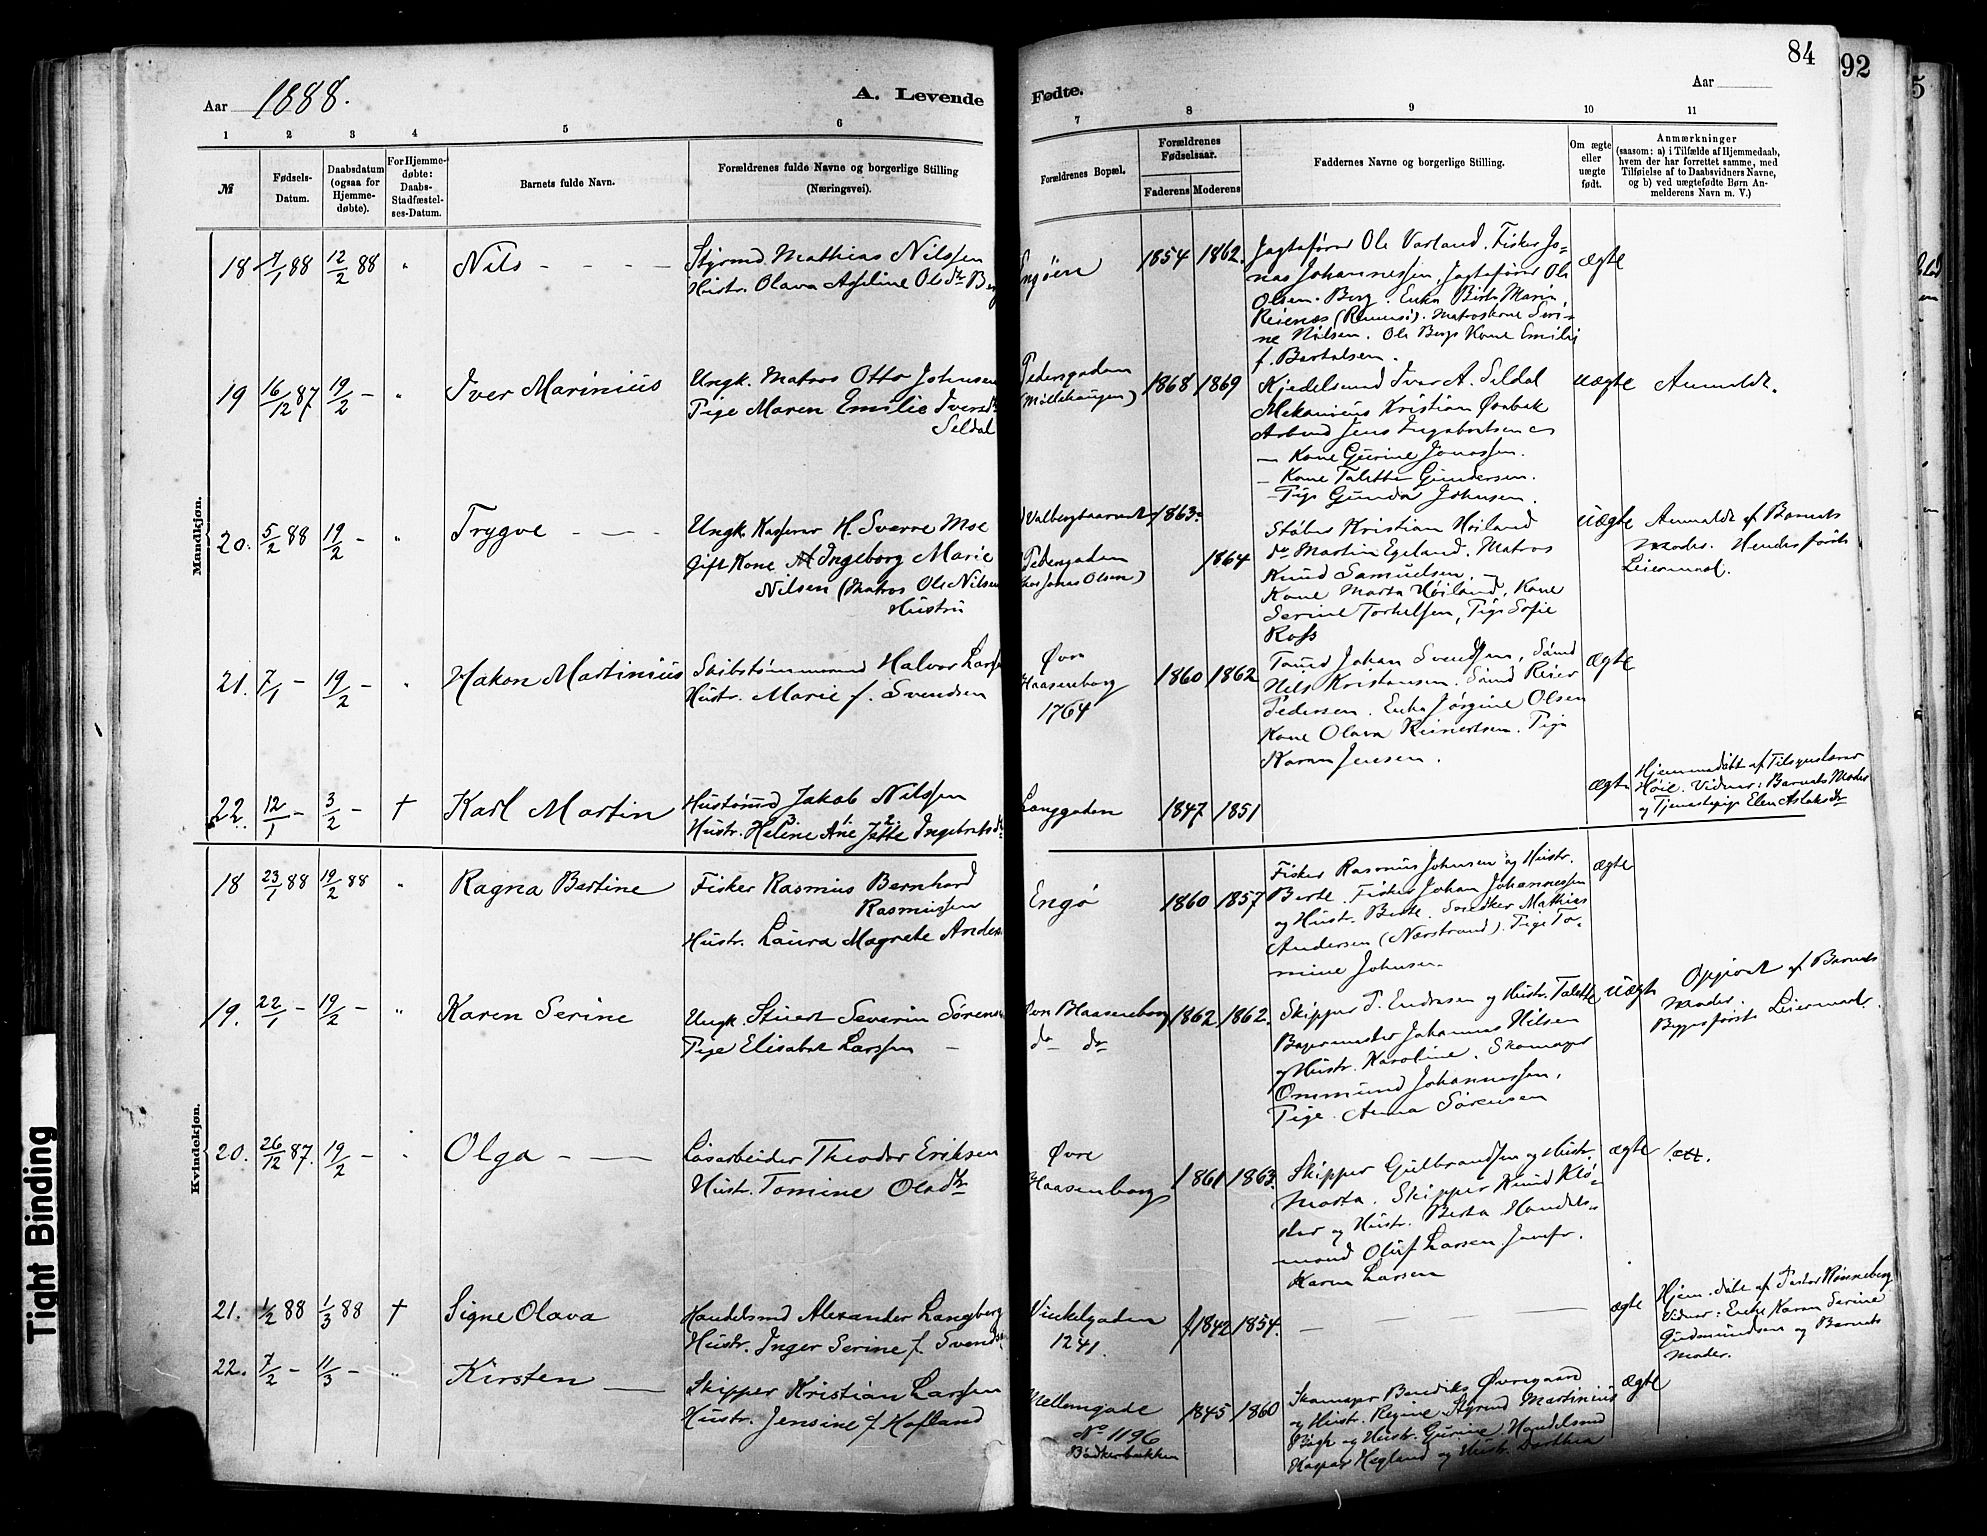 84
92
5
Aar 1888.
A. Levende
Fødte.
Aar
1 2 3 4 5 6 7 8 9 10 11
№
Fødsels-
Datum.
Daabsdatum
(ogsaa for
Hjemme-
døbte).
For Hjemme-
døbte:
Daabs-
Stadfæstel-
ses-Datum.
Barnets fulde Navn.
Forældrenes fulde Navne og borgerlige Stilling
(Næringsvei).
Forældrenes Bopæl.
Forældrenes
Fødselsaar.
Faderens Moderens
Faddernes Navne og borgerlige Stilling.
Om ægte
eller
uægte
født.
Anmærkninger
(saasom: a) i Tilfælde af Hjemmedaab,
hvem der har forrettet samme, med
Tilføielse af to Daabsvidners Navne,
og b) ved uægtefødte Børn An-
melderens Navn m. V.)
Mandkjøn.
18 7/1 88 12/2 88 " Nils
Styrmd. Mathias Nilssen
Hustr. Olava Aseline Olsdtr Berg
Engöen
1854 1862.
Jagtefører Ole Varland. Fisker Jo=
nas Johannessen, Jagtefører Ole
Olsen Berg. Enke Birte Maria
Reienes (Rennesö). Matroskone Seri=
ne Nilsen. Ole Bergs Kone Emilie
f. Bertelsen.
ægte
19 16/12 87 19/2 - " Iver Marinius
Ungk. Matros Otto Johnsen
Pige Maren Emilie Iversdtr
Seldal
Pedersgaden
(Möllehaugen)
1868 1869
Kjedelsmed Iver A. Seldal
Mekanicus Kristian Ørebek
Arbmd Jens Ingebretsen
— Kone Gurine Jonassen.
— Kone Talette Gundersen.
— Pige Gunda Johnsen.
uægte Anmeldt.
20. 5/2 88 19/2 - " Trygve
Ungk. Kasserer H. Sverre Moe
Gift Kone Ingeborg Marie
Nilsen (Matros Ole Nilsens
Hustru
Valbergtaarnet
Pedersgaden
(hos Jonas Olsen)
1863
1864
Støber Kristian Høiland
do Martin Egeland. Matros
Knud Samuelsen.
Kone Marta Høiland, Kone
Serine Torkelsen, Pige Sofie
Ross
uægte Anmeldt af Barnets
Moder. Hendes første
Leiermaal.
21. 7/1 - 19/2 - " Hakon Martinius
Skibstömmermd Halvor Larsen
Hustr. Marie f. Svendsen
Øvre
Haasenborg
1764
1860 1862
Tømd Johan Svendsen, Sømd
Nils Kristensen. Sømd Reier
Pedersen. Enke Jørgine Olsen
Kone Olava Reinertsen. Pige
Karen Jensen.
ægte
22. 12/1 - 3/2 - † Karl Martin
Hustømd Jakob Nilssen
Hustr. Heline Ane Jette Ingebretsdtr
Langgaden
1847 1851
ægte
Hjemmedøbt af Tilsynslærer
Høie. Vidner: Barnets Moder
og Tjenestepige Elen Aslaksdtr
Kvindekjøn.
18 23/1 88 19/2 88 " Ragna Bertine
Fisker Rasmus Bernhard
Rasmussen
Hustr. Laura Magrete Anders
Engö
1860 1857
Fisker Rasmus Johnsen og Hustr.
Berte. Fisker Johan Johannessen
og Hustr. Berte. Snedker Mathias
Andersen (Nærstrand). Pige To-
mine Johnsen.
ægte
19. 22/1 - 19/2 - " Karen Serine
Ungk. Stuert Severin Sörens
Pige Elisabet Larssen
Øvre Haasenborg
do do
1862 1862.
Skipper P. Endresen og Hustr. Talette
Bagermester Johannes Nilsen
og Hustr. Karoline. Skomager
Ommund Johannessen.
Pige Anna Sörensen
uægte Opgivet af Barnets
Moder.
Begges første Leiermaal.
20. 26/12 87. 19/2 - " Olga
Løsarbeider Theodor Eriksen
Hustr. Tomine Olsdtr
Øvre
Haasenborg
1861 1863.
Skipper Gulbrandsen og Hustr.
Marta. Skipper Knud Klö=
der og Hustr. Berta Handels=
mand Oluf Larsen Jomfr.
Karen Larsen
ægte
21. 1/2 88 1/3 88 † Signe Olava
Handelsmd Alexander Langberg
Hustr. Inger Serine f. Svends
Vinkelgaden
1241.
1842 1854.
ægte
Hjem. døbt af Pastor Rönneberg
Vidner: Enke Karen Serine
Gudmundsen og Barnets
Moder.
22. 7/2 - 11/3 - " Kirsten
Skipper Kristian Larssen
Hustr. Jensine f. Hofland
Mellemgade
No 1196
Bödkerbakken
1845 1860
Skomager Bendiks Øvregaard
og Hustr. Regine. Styrmd Martinius
Bögh og Hustr. Gurine. Handelsmd
Kaspar Hegland og Hustr. Dorthea
ægte
Tight Binding